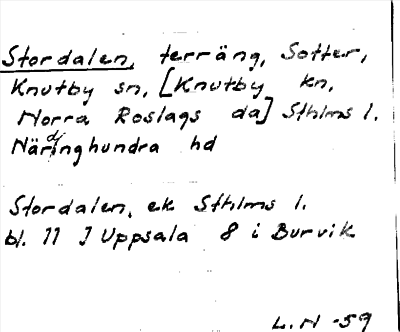 Stordalen, terräng, Sotter,
Knutby sn, [Knutby kn,
Norra Roslags da] Sthlms l.
Närdinghundra hd
Stordalen, ek Sthlms l.
bl. 11 J Uppsala 8 i Burvik
L.N -59